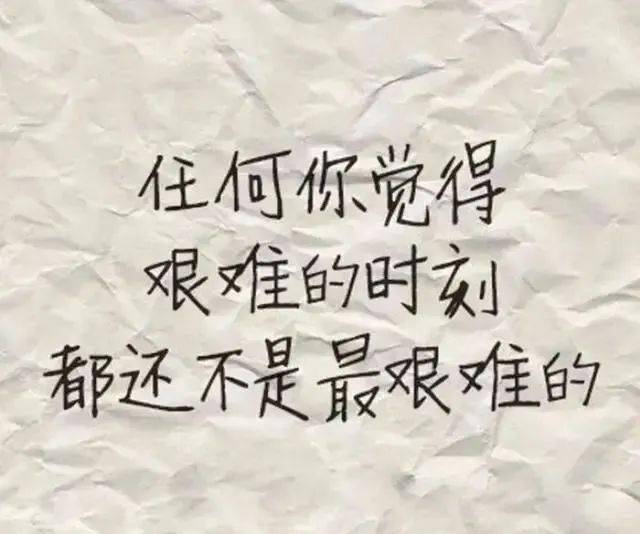 任何你觉得
艰难的时刻
都还不是最艰难的